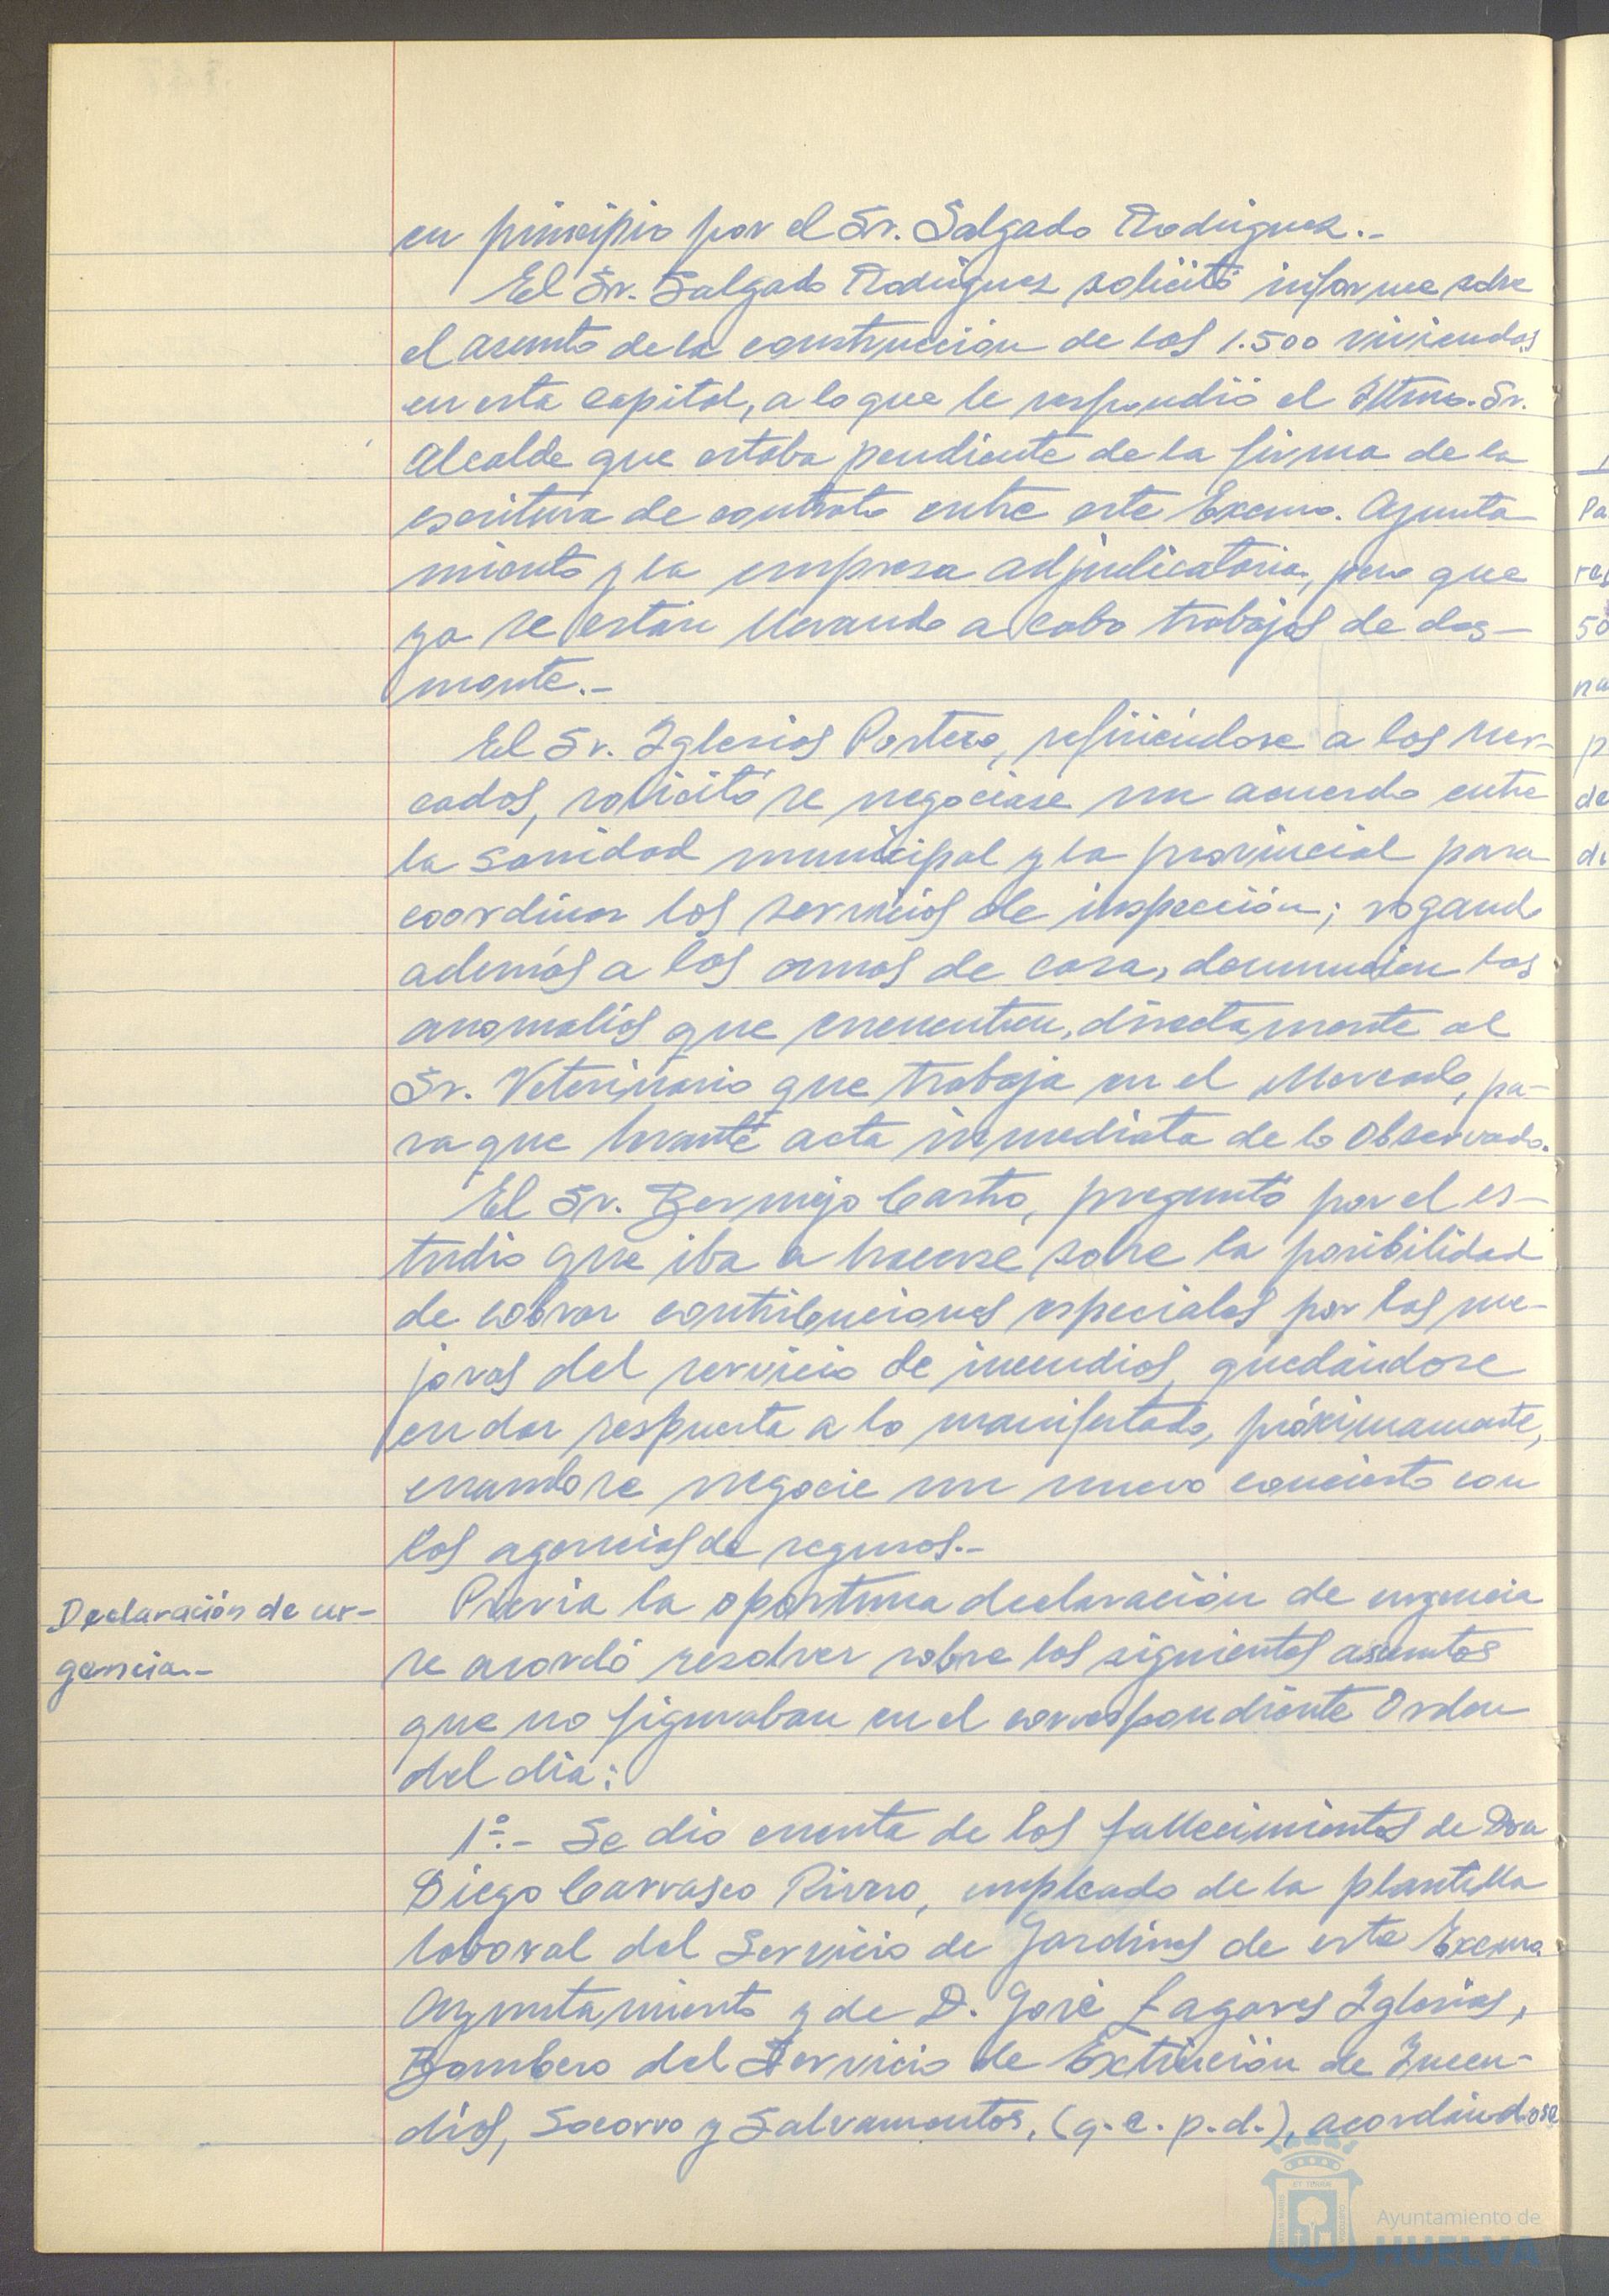 en principio por el Sr. Salgado Rodriguez.-
El Sr. Salgado Rodriguez solicitó informe sobre
el asunto de la construcción de las 1.500 viviendas
en esta capital, a lo que le respondió el Iltmo. Sr.
Alcalde que estaba pendiente de la firma de la
escritura de contrato entre este Excmo. Ayunta-
miento y la empresa adjudicataria, pero que
ya se están llevando a cabo trabajos de des-
monte.-
El Sr. Iglesias Portero, refiriéndose a los mer-
cados, solicitó se negociase un acuerdo entre
la sanidad municipal y la provincial para
coordinar los servicios de inspección; rogando
además a las amas de casa, denuncien las
anomalías que encuentren, directamente al
Sr. Veterinario que trabaja en el Mercado, pa-
ra que levante acta inmediata de lo observado.
El Sr. Bermejo Castro, preguntó por el es-
tudio que iba a hacerse sobre la posibilidad
de cobrar contribuciones especiales por las me-
joras del servicio de incendios, quedándose
en dar respuesta a lo manifestado, próximamente,
cuando se negocie un nuevo concierto con
las agencias de seguros.-
Declaración de ur-
gencia.-
Previa la oportuna declaración de urgencia
se acordó resolver sobre los siguientes asuntos
que no figuraban en el correspondiente Orden
del dia:
1º.- Se dio cuenta de los fallecimientos de Don
Diego Carrasco Rivero, empleado de la plantilla
laboral del Servicio de Jardines de este Excmo.
Ayuntamiento y de D. José Lagares Iglesias,
Bombero del Servicio de Extinción de Incen-
dios, Socorro y Salvamentos, (q.e.p.d.), acordándose
Ayuntamiento de
HUELVA